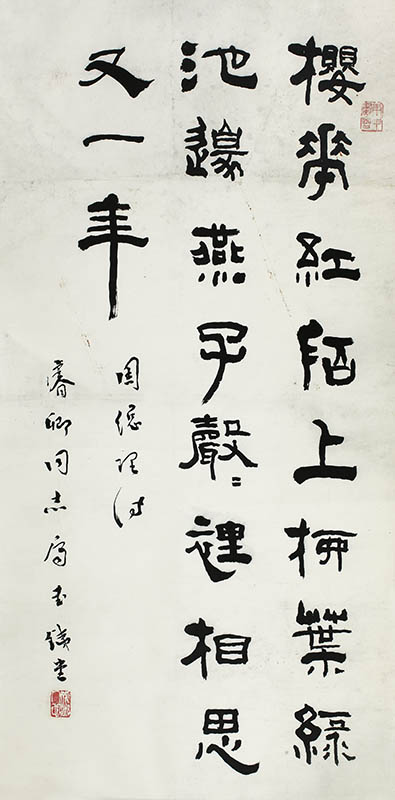 櫻花紅陌上柳葉綠
池邊燕子聲聲裡相思
又一年
周總理詩
濬卿同志屬書鐵生